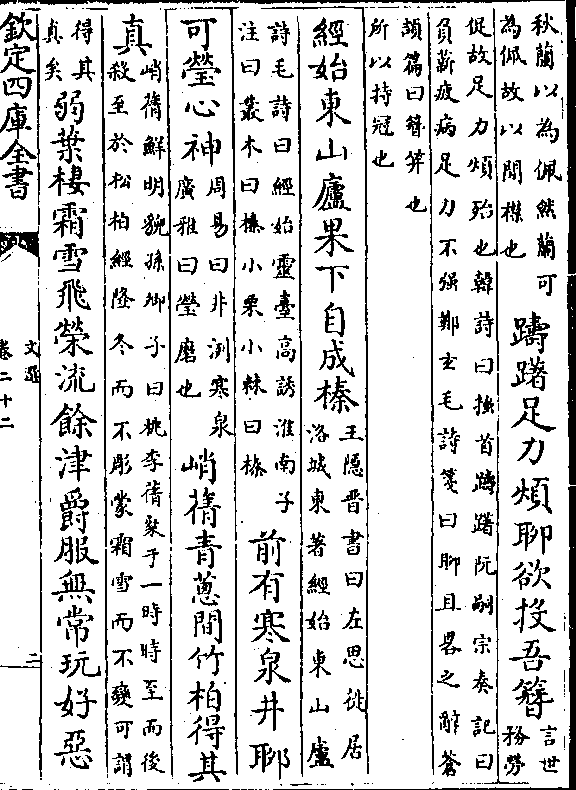 秋蘭以為佩然蘭可
為佩故以間襟也
躊躇足力煩聊欲投吾簪
言世
務勞
促故足力煩殆也韓詩曰搔首躊躇阮嗣宗奏記曰
負薪疲病足力不强鄭玄毛詩箋曰聊且畧之辭蒼
頡篇曰簪笄也
所以持冠也
經始東山廬果下自成榛
王隱晉書曰左思徙居
洛城東著經始東山廬
詩毛詩曰經始靈臺高誘淮南子
注曰叢木曰榛小栗小棘曰榛
前有寒泉井聊
可瑩心神
周易曰井洌寒泉
廣雅曰瑩磨也
峭蒨青蔥間竹柏得其
真
峭蒨鮮明貌孫卿子曰桃李蒨粲于一時時至而後
殺至於松柏經隆冬而不彫蒙霜雪而不變可謂
得其
真矣
弱葉棲霜雪飛榮流餘津爵服無常玩好惡
欽定四庫全書
文選
卷二十二
二